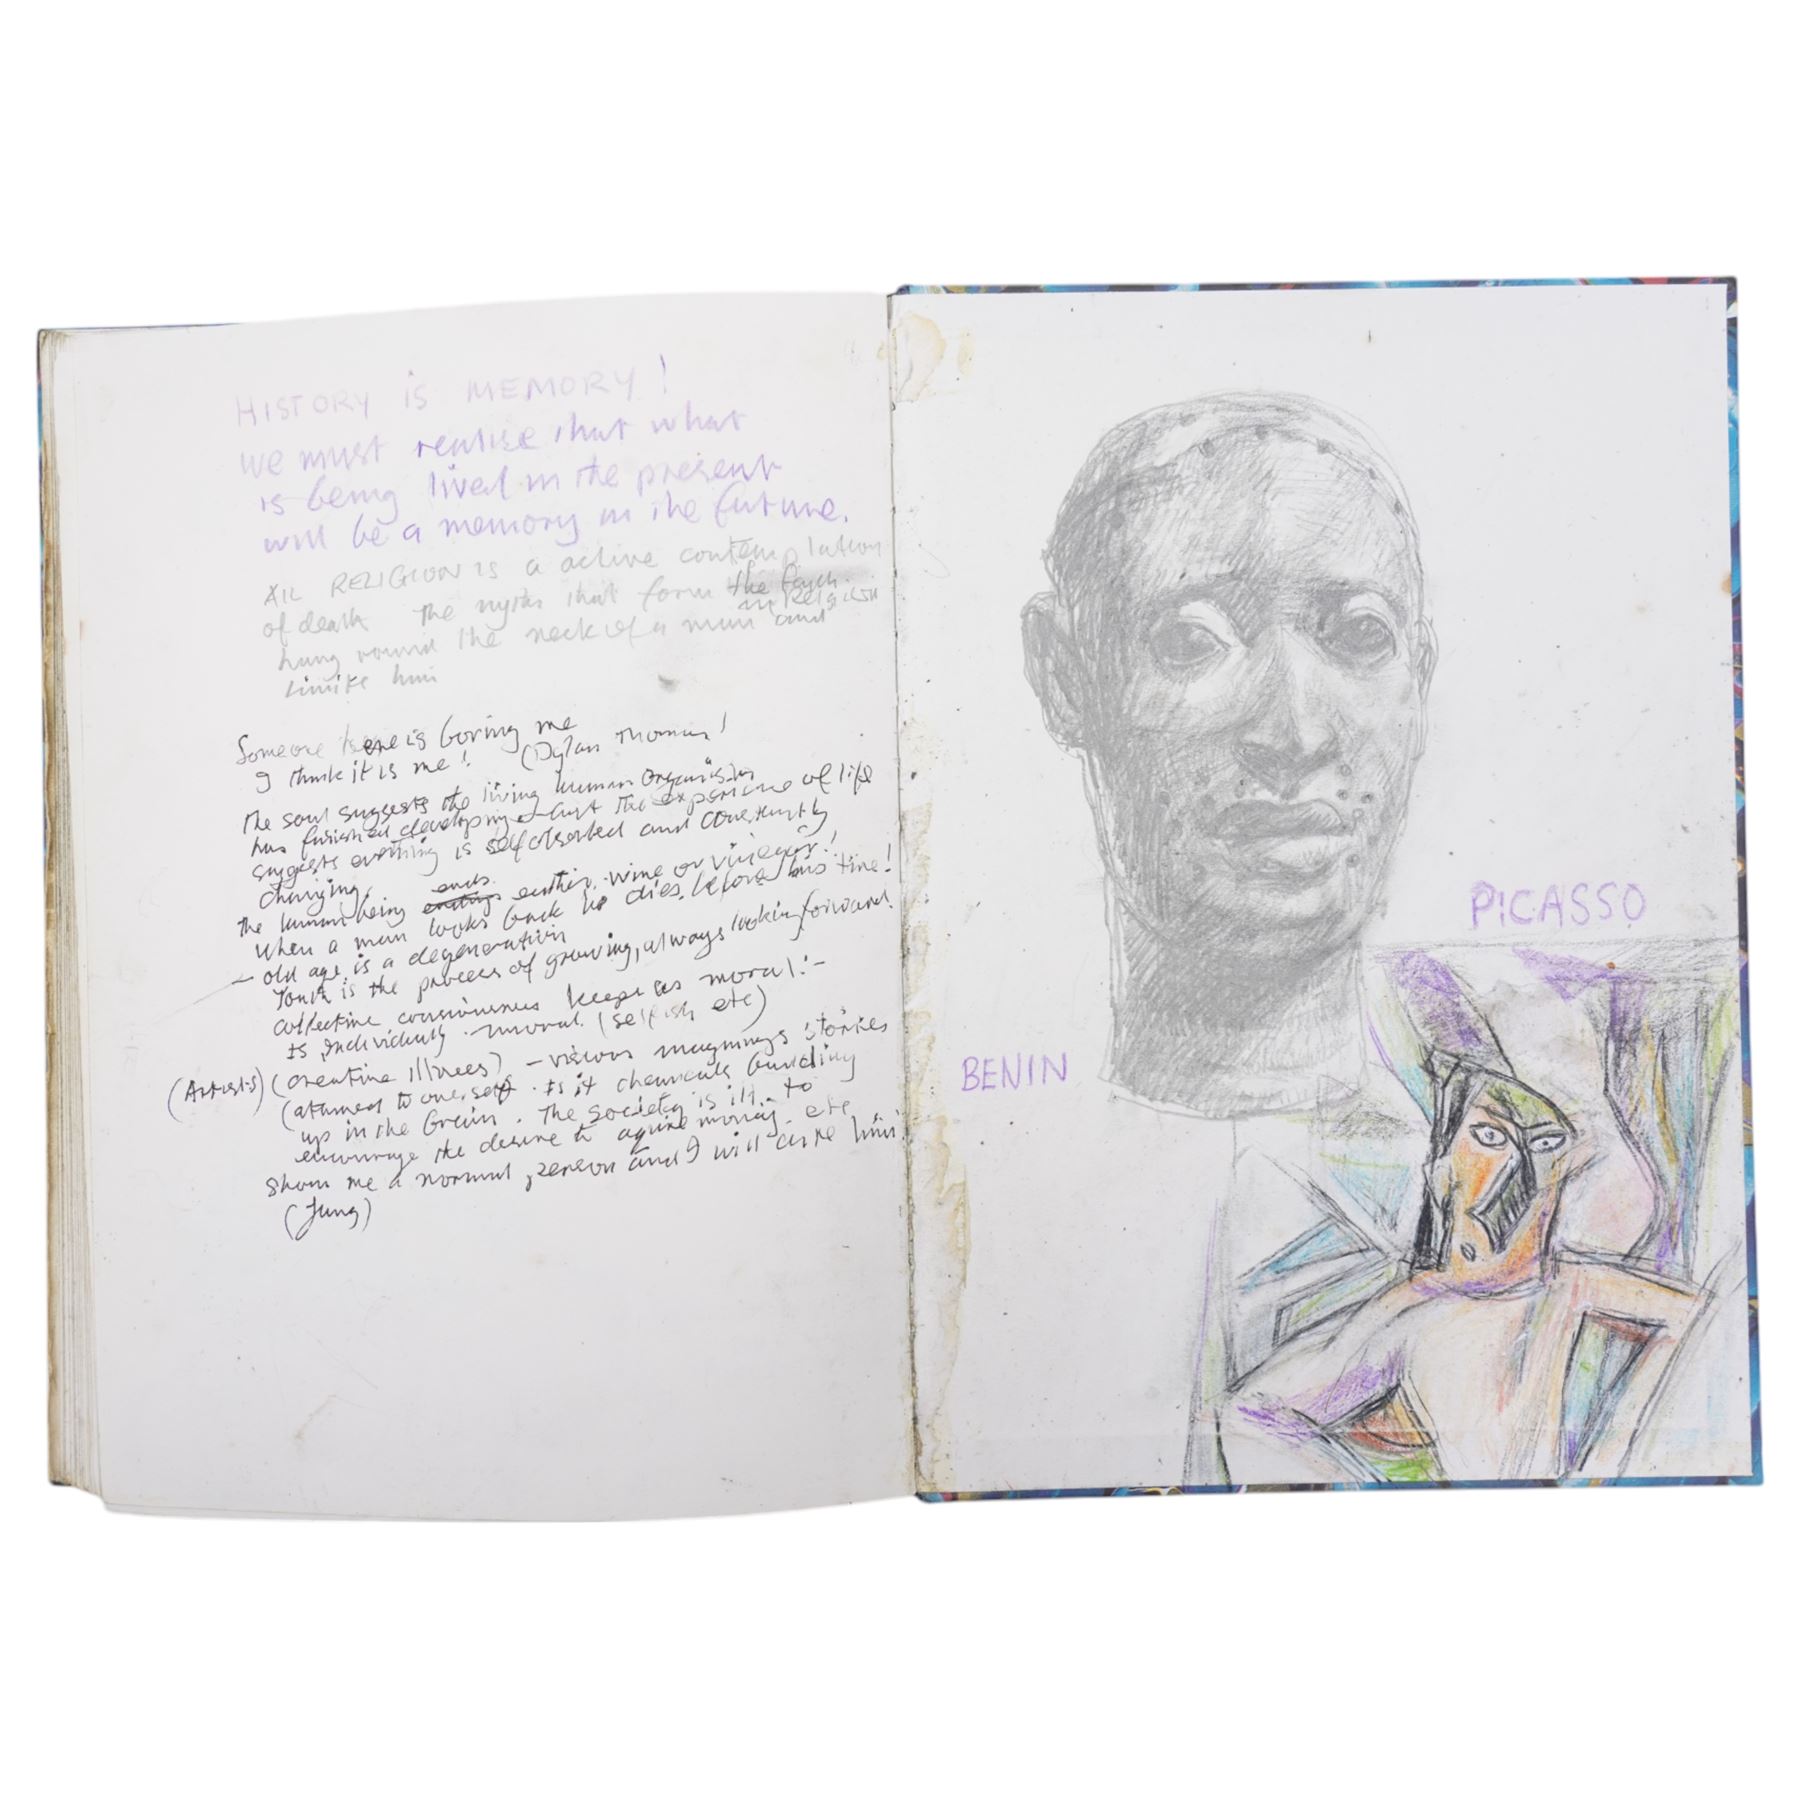 HISTORY is MEMORY!
We must realise that what
is being lived in the present
will be a memory in the future.
All RELIGION is a active contemplation
of death The myths that form the
in Religion
hung round the neck of a man and
limite him
Someone here is boring me
I think it is me! (Dylan Thomas!
The soul suggests the living human organism
has finished developing - but the experience of life
suggests everthing is self absorbed and constantly
changing.
ends
The human being either wine or vinegar!
when a man looks back he dies before his time!
- old age is a degeneration
Youth is the process of growing, always looking forward.
collective consiousness keeps us moral:-
is individualy - (selfish etc)
(Artists) (creative illnees) - visions imaginings stories
(atuned to oneself. Is it chemicals building
up in the brain. The society is ill. to
encourage the desire to aquire money etc
Show me a normal person and I will cure him!
(Jung)
PICASSO
BENIN